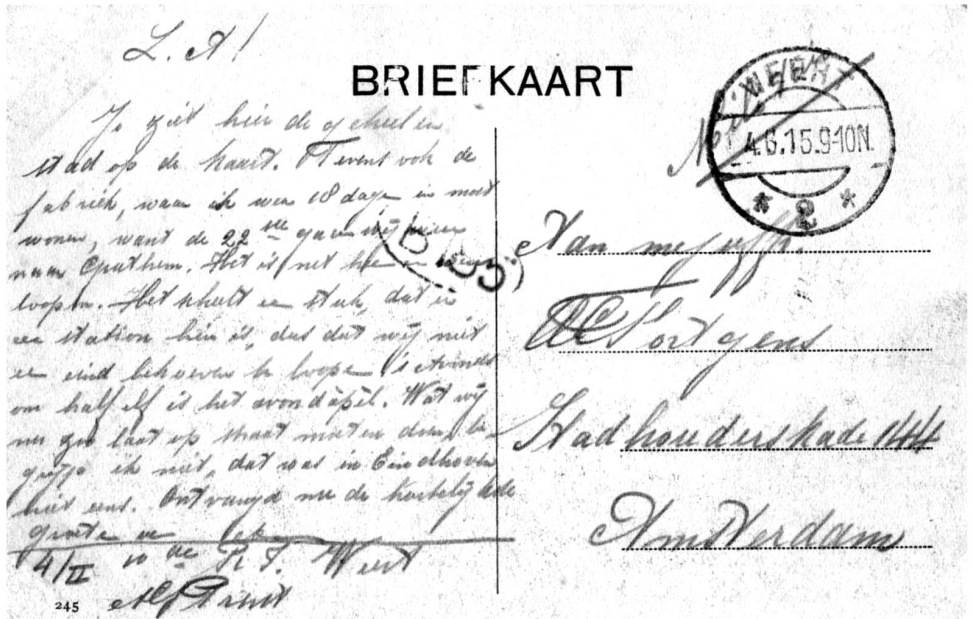 L. A!
BRIEFKAART
Je ziet hier de geheelen
stad op de kaart. Tevens ook de
fabriek, waar ik weer 18 dagen in moet
wonen, want de 22ste gaan wij
naar . Het is net
loopen. Het scheelt een stuk, dat er
een station hier is, dus dat wij niet
een eind behoeven te loopen 's Avonds
om half elf is het avondappèl. Wat wij
nu zoo laat op straat moeten doen, be-
grijp ik niet, dat was in Eindhoven
niet eens. Ontvangd nu de hartelijkste
groete
4/II 10de R. I. Weert
245
WEERT
4.6.15.9-10N.
* 2 *
Aan mejuffr.
Portgens
Stadhouderskade 144
Amsterdam